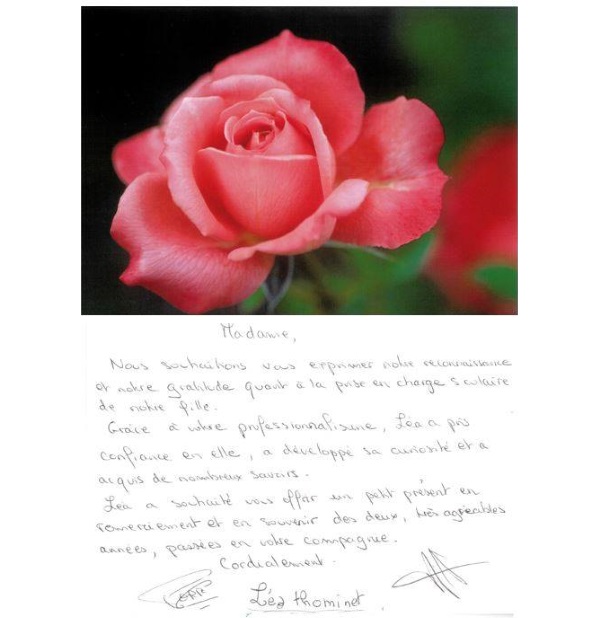 Madame,
Nous souhaitions vous exprimer notre reconnaissance
et notre gratitude quant à la prise en charge scolaire
de notre fille.
Grâce à votre professionnalisme, Léa a pris
confiance en elle, a développé sa curiosité et a
acquis de nombreux savoirs.
Léa a souhaité vous offrir un petit présent en
remerciement et en souvenir des deux, très agréables
années, passées en votre compagnie.
Cordialement.
Léa thominet